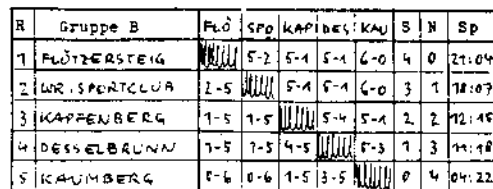 R Gruppe B FLÖ SPO KAP DES KAU S N Sp
1 FLÖTZERSTEIG 5-2 5-1 5-1 6-0 4 0 21:04
2 WR.SPORTCLUB 2-5 5-1 5-1 6-0 3 1 18:07
3 KAPFENBERG 1-5 1-5 5-4 5-1 2 2 12:15
4 DESSELBRUNN 1-5 1-5 4-5 5-3 1 3 11:18
5 KAUMBERG 0-6 0-6 1-5 3-5 0 4 04:22